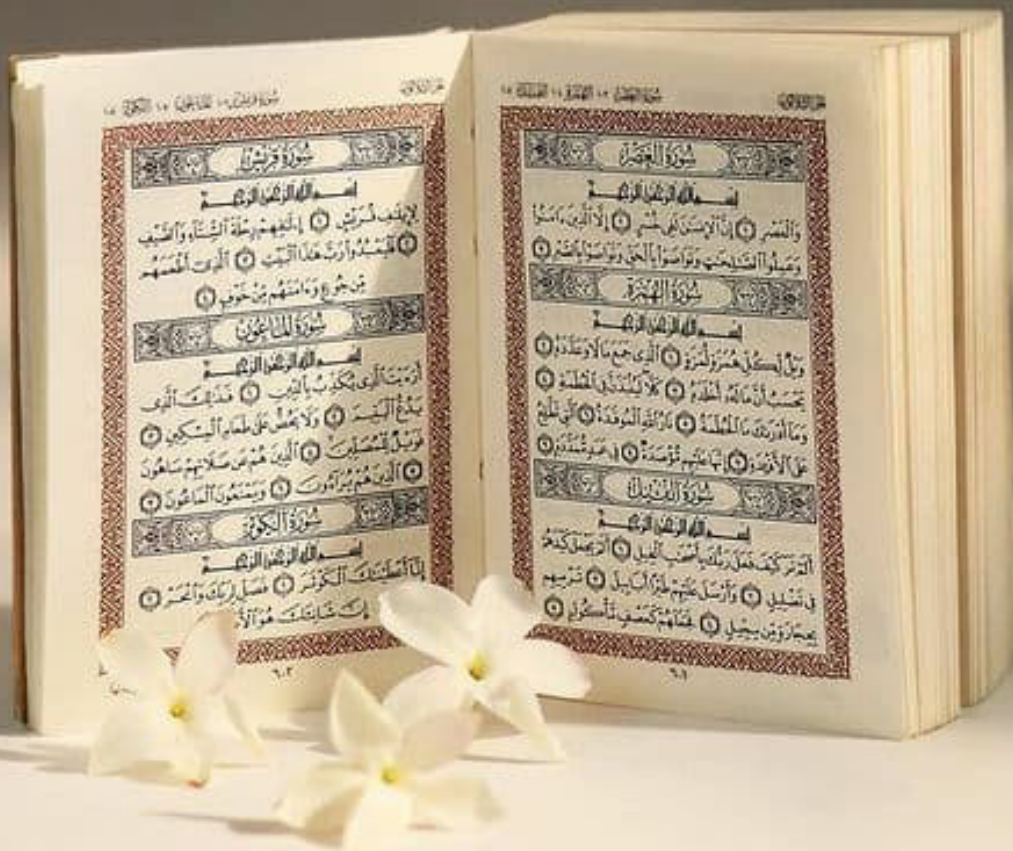 سُورَةُ العَصْرِ ١٠٣ الهُمَزَةِ ١٠٤ الفِيلِ ١٠٥
سُورَةُ العَصْرِ
بِسْمِ اللَّهِ الرَّحْمَٰنِ الرَّحِيمِ
وَٱلْعَصْرِ ١ إِنَّ ٱلْإِنسَٰنَ لَفِى خُسْرٍ ٢ إِلَّا ٱلَّذِينَ ءَامَنُوا۟
وَعَمِلُوا۟ ٱلصَّٰلِحَٰتِ وَتَوَاصَوْا۟ بِٱلْحَقِّ وَتَوَاصَوْا۟ بِٱلصَّبْرِ ٣
سُورَةُ الهُمَزَةِ
بِسْمِ اللَّهِ الرَّحْمَٰنِ الرَّحِيمِ
وَيْلٌ لِّكُلِّ هُمَزَةٍ لُّمَزَةٍ ١ ٱلَّذِى جَمَعَ مَالًا وَعَدَّدَهُۥ ٢
يَحْسَبُ أَنَّ مَالَهُۥٓ أَخْلَدَهُۥ ٣ كَلَّا لَيُنۢبَذَنَّ فِى ٱلْحُطَمَةِ ٤
وَمَآ أَدْرَىٰكَ مَا ٱلْحُطَمَةُ ٥ نَارُ ٱللَّهِ ٱلْمُوقَدَةُ ٦ ٱلَّتِى تَطَّلِعُ
عَلَى ٱلْأَفْـِٔدَةِ ٧ إِنَّهَا عَلَيْهِم مُّؤْصَدَةٌ ٨ فِى عَمَدٍ مُّمَدَّدَةٍ ٩
سُورَةُ الفِيلِ
بِسْمِ اللَّهِ الرَّحْمَٰنِ الرَّحِيمِ
أَلَمْ تَرَ كَيْفَ فَعَلَ رَبُّكَ بِأَصْحَٰبِ ٱلْفِيلِ ١ أَلَمْ يَجْعَلْ كَيْدَهُمْ
فِى تَضْلِيلٍ ٢ وَأَرْسَلَ عَلَيْهِمْ طَيْرًا أَبَابِيلَ ٣ تَرْمِيهِم
بِحِجَارَةٍ مِّن سِجِّيلٍ ٤ فَجَعَلَهُمْ كَعَصْفٍ مَّأْكُولٍۭ ٥
٦٠١
سُورَةُ قُرَيْشٍ
بِسْمِ اللَّهِ الرَّحْمَٰنِ الرَّحِيمِ
لِإِيلَٰفِ قُرَيْشٍ ١ إِۦلَٰفِهِمْ رِحْلَةَ ٱلشِّتَآءِ وَٱلصَّيْفِ
٢ فَلْيَعْبُدُوا۟ رَبَّ هَٰذَا ٱلْبَيْتِ ٣ ٱلَّذِىٓ أَطْعَمَهُم
مِّن جُوعٍ وَءَامَنَهُم مِّنْ خَوْفٍۭ ٤
سُورَةُ المَاعُونِ
بِسْمِ اللَّهِ الرَّحْمَٰنِ الرَّحِيمِ
أَرَءَيْتَ ٱلَّذِى يُكَذِّبُ بِٱلدِّينِ ١ فَذَٰلِكَ ٱلَّذِى
يَدُعُّ ٱلْيَتِيمَ ٢ وَلَا يَحُضُّ عَلَىٰ طَعَامِ ٱلْمِسْكِينِ ٣
فَوَيْلٌ لِّلْمُصَلِّينَ ٤ ٱلَّذِينَ هُمْ عَن صَلَاتِهِمْ سَاهُونَ
٥ ٱلَّذِينَ هُمْ يُرَآءُونَ ٦ وَيَمْنَعُونَ ٱلْمَاعُونَ ٧
سُورَةُ الكَوْثَرِ
بِسْمِ اللَّهِ الرَّحْمَٰنِ الرَّحِيمِ
إِنَّآ أَعْطَيْنَٰكَ ٱلْكَوْثَرَ ١ فَصَلِّ لِرَبِّكَ وَٱنْحَرْ ٢
إِنَّ شَانِئَكَ هُوَ
٦٠٢